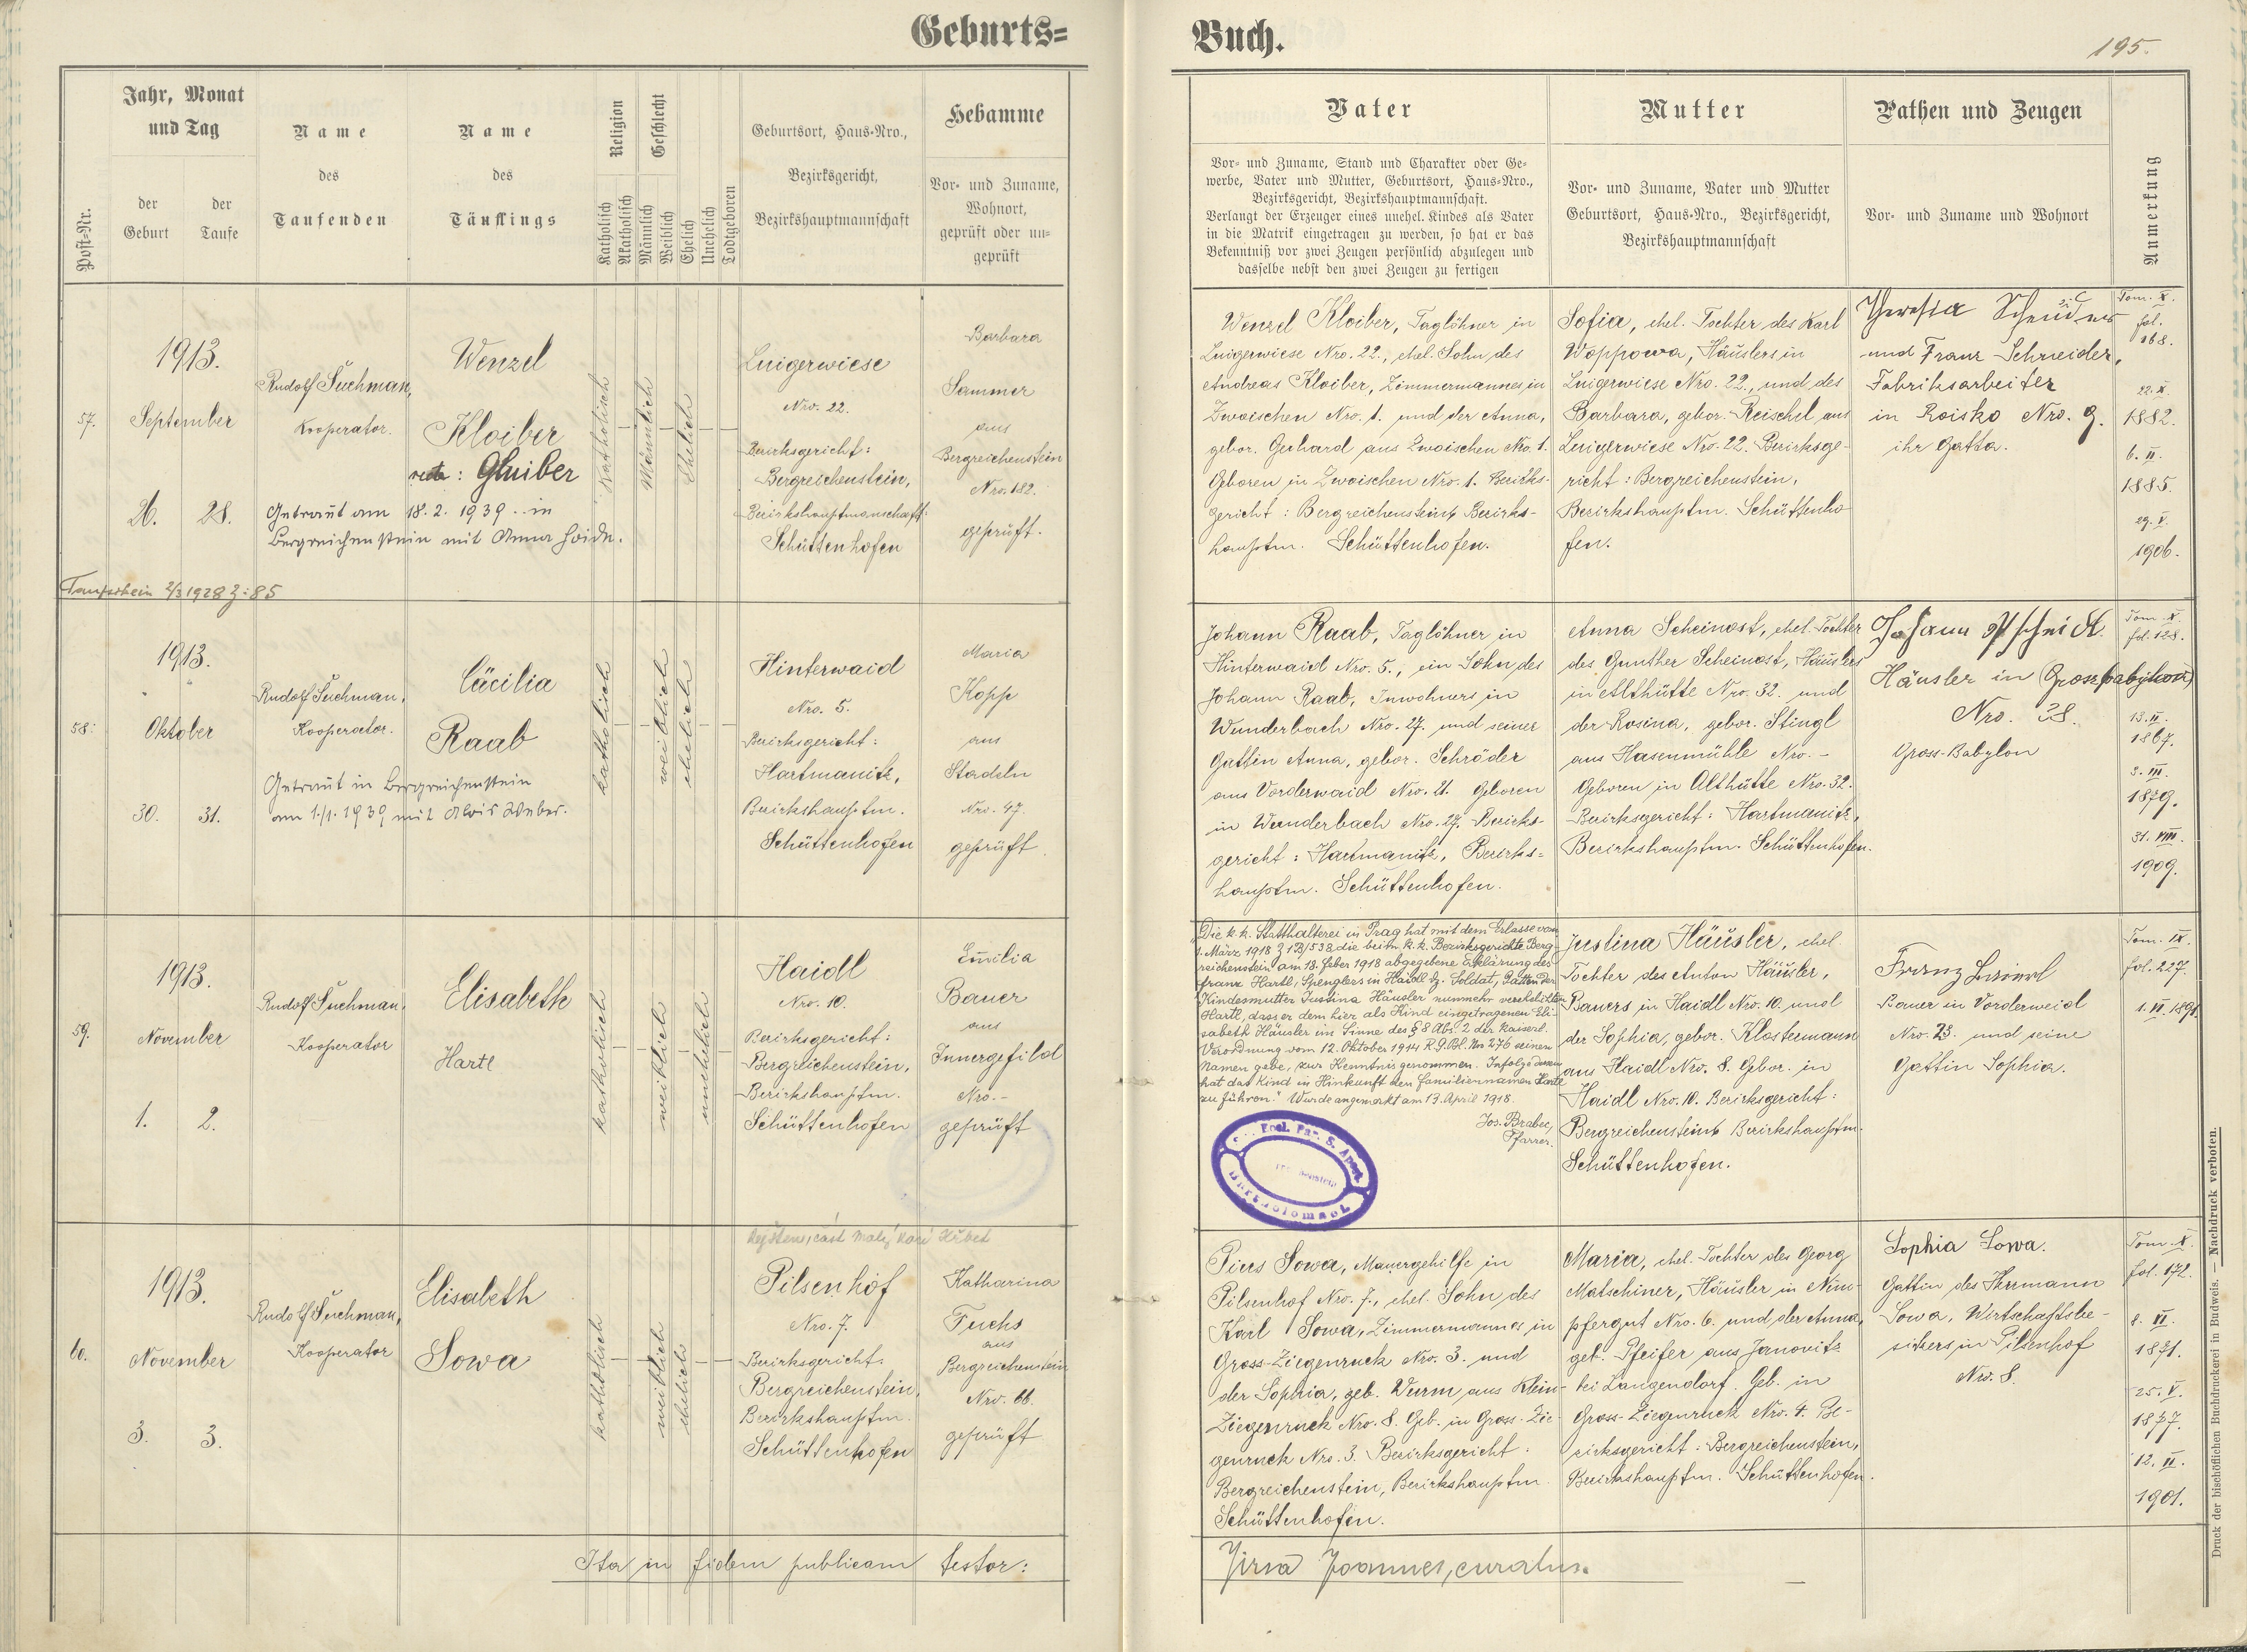 Geburts=
Buch.
195.
Jahr, Monat
und Tag
Post-Nr.
der
Geburt
der
Taufe
Name
des
Taufenden
Name
des
Täuflings
Religion
Katholisch
Akatholisch
Geschlecht
Männlich
Weiblich
Ehelich
Unehelich
Todtgeboren
Geburtsort, Haus-Nro.,
Bezirksgericht,
Bezirkshauptmannschaft
Hebamme
Vor- und Zuname,
Wohnort,
geprüft oder un-
geprüft
Vater
Vor- und Zuname, Stand und Charakter oder Ge-
werbe, Vater und Mutter, Geburtsort, Haus-Nro.,
Bezirksgericht, Bezirkshauptmannschaft.
Verlangt der Erzeuger eines unehel. Kindes als Vater
in die Matrik eingetragen zu werden, so hat er das
Bekenntniß vor zwei Zeugen persönlich abzulegen und
dasselbe nebst den zwei Zeugen zu fertigen
Mutter
Vor- und Zuname, Vater und Mutter
Geburtsort, Haus-Nro., Bezirksgericht,
Bezirkshauptmannschaft
Pathen und Zeugen
Vor- und Zuname und Wohnort
Anmerkung
57.
1913.
September
26. 28.
Rudolf Suchman,
Kooperator.
Wenzel
Kloiber
recte: Gluiber
Getraut am 18. 2. 1939 .. in
Bergreichenstein mit Anna Hoidn.
Taufschein 2/3 1928 Z: 85
Katholisch
Männlich
Ehelich
Luigerwiese
Nro. 22.
Bezirksgericht:
Bergreichenstein,
Bezirkshauptmanschaft:
Schüttenhofen
Barbara
Sammer
aus
Bergreichenstein
Nro. 182.
geprüft.
Wenzel Kloiber, Taglöhner in
Luigerwiese Nro. 22., ehel. Sohn des
Andreas Kloiber, Zimmermannes in
Zwoischen Nro. 1. und der Anna,
gebor. Gerhard aus Zwoischen Nro. 1.
Geboren in Zwoischen Nro. 1. Bezirks-
gericht: Bergreichenstein, Bezirks-
hauptm. Schüttenhofen.
Sofia, ehel. Tochter des Karl
Woppowa, Häuslers in
Luigerwiese Nro. 22., und des
Barbara, gebor. Reischel aus
Luigerwiese Nro. 22. Bezirksge-
richt: Bergreichenstein,
Bezirkshauptm. Schüttenho
fen.
Theresia
und Franz Schneider,
Fabriksarbeiter
in Roisko Nro. 9.
ihr Gatte.
Tom. X.
fol.
168.
22. X.
1882.
6. II.
1885.
29. V.
1906.
58.
1913.
Oktober
30. 31.
Rudolf Suchman,
Kooperator.
Cäcilia
Raab
Getraut in Bergreichenstein
am 1./1. 1939 mit Alois Weber.
katholisch
weiblich
ehelich
Hinterwaid
Nro. 5.
Bezirksgericht:
Hartmanitz,
Bezirkshauptm.
Schüttenhofen
Maria
Kopp
aus
Stadeln
Nro. 47.
geprüft.
Johann Raab, Taglöhner in
Hinterwaid Nro. 5., ein Sohn des
Johann Raab, Inwohners in
Wunderbach Nro. 27. und seiner
Gattin Anna, gebor. Schröder
aus Vorderwaid Nro. 21. Geboren
in Wunderbach Nro. 27. Bezirks-
gericht: Hartmanitz, Bezirks=
hauptm. Schüttenhofen.
Anna Scheinost, ehel. Tochter
des Gunther Scheinost, Häuslers
in Althütte Nro. 32. und
der Rosina, gebor. Stingl
aus Hasenmühle Nro. -
Geboren in Althütte Nro. 32.
Bezirksgericht: Hartmanitz,
Bezirkshauptm. Schüttenhofen.
Johann
Häusler in (Grossbabylon)
Nro. 38.
Gross-Babylon
Tom. X.
fol. 128.
13. II.
1867.
3. III.
1879.
31. VIII.
1909.
59.
1913.
November
1. 2.
Rudolf Suchman,
Kooperator
Elisabeth
Hartl
katholisch
weiblich
unehelich
Haidl
Nro. 10.
Bezirksgericht:
Bergreichenstein,
Bezirkshauptm.
Schüttenhofen
Emilia
Bauer
aus
Innergefild
Nro. -
geprüft
Die k. k. Statthalterei in Prag hat mit dem Erlasse vom
1. März 1918 Z 1B/538 die beim k. k. Bezirksgerichte Berg-
reichenstein am 18. Feber 1918 abgegebene Erklärung des
Franz Hartl, Spenglers in Haidl dz. Soldat, Gatten der
Kindesmutter Justina Häusler nunmehr verehelichten
Hartl, dass er dem hier als Kind eingetragenen Eli-
sabeth Häusler im Sinne des § 8 Abs. 2 der kaiserl.
Verordnung vom 12. Oktober 1914 R. G. Bl. Nro 276 seinen
Namen gebe, zur Kenntnis genommen. Infolge dessen
hat das Kind in Hinkunft den Familiennamen Hartl
zu führen." Wurde angemerkt am 13. April 1918.
Jos. Brabec,
Pfarrer.
Justina Häusler, ehel.
Tochter des Anton Häusler,
Bauers in Haidl Nro. 10. und
der Sophia, gebor. Klostermann
aus Haidl Nro. 8. Gebor. in
Haidl Nro. 10. Bezirksgericht:
Bergreichenstein, Bezirkshauptm.
Schüttenhofen.
Franz
Bauer in Vorderweid
Nro. 23. und seine
Gattin Sophia.
Tom. IX.
fol. 227.
1. VI. 1891
60.
1913.
November
3. 3.
Rudolf Suchman,
Kooperator
Elisabeth
Sowa
katholisch
weiblich
ehelich
část Malý Kozí Hřbet
Pilsenhof
Nro. 7.
Bezirksgericht:
Bergreichenstein,
Bezirkshauptm.
Schüttenhofen
Katharina
Fuchs
aus
Bergreichenstein
Nro. 66.
geprüft
Pius Sowa, Maurergehilfe in
Pilsenhof Nro. 7., ehel. Sohn des
Karl Sowa, Zimmermannes in
Gross-Ziegenruck Nro. 3. und
der Sophia, geb. Wurm aus Klein-
Ziegenruck Nro. 8. Geb. in Gross-Zie-
genruck Nro. 3. Bezirksgericht:
Bergreichenstein, Bezirkshauptm.
Schüttenhofen.
Maria, ehel. Tochter des Georg
Matschiner, Häusler in Nim-
pfergut Nro. 6. und der Anna,
geb. Pfeifer aus Janovitz
bei Langendorf. Geb. in
Gross-Ziegenruck Nro. 4. Be-
zirksgericht: Bergreichenstein,
Bezirkshauptm. Schüttenhofen.
Sophia Sowa.
Gattin des Hermann
Sowa, Wirtschaftsbe-
sitzers in Pilsenhof
Nro. 8.
Tom. X.
fol. 172.
8. VI.
1871.
25. V.
1877.
12. II.
1901.
Ita in fidem publicam testor:
Jirsa Joannes, curatus.
Druck der bischöflichen Buchdruckerei in Budweis. — Nachdruck verboten.